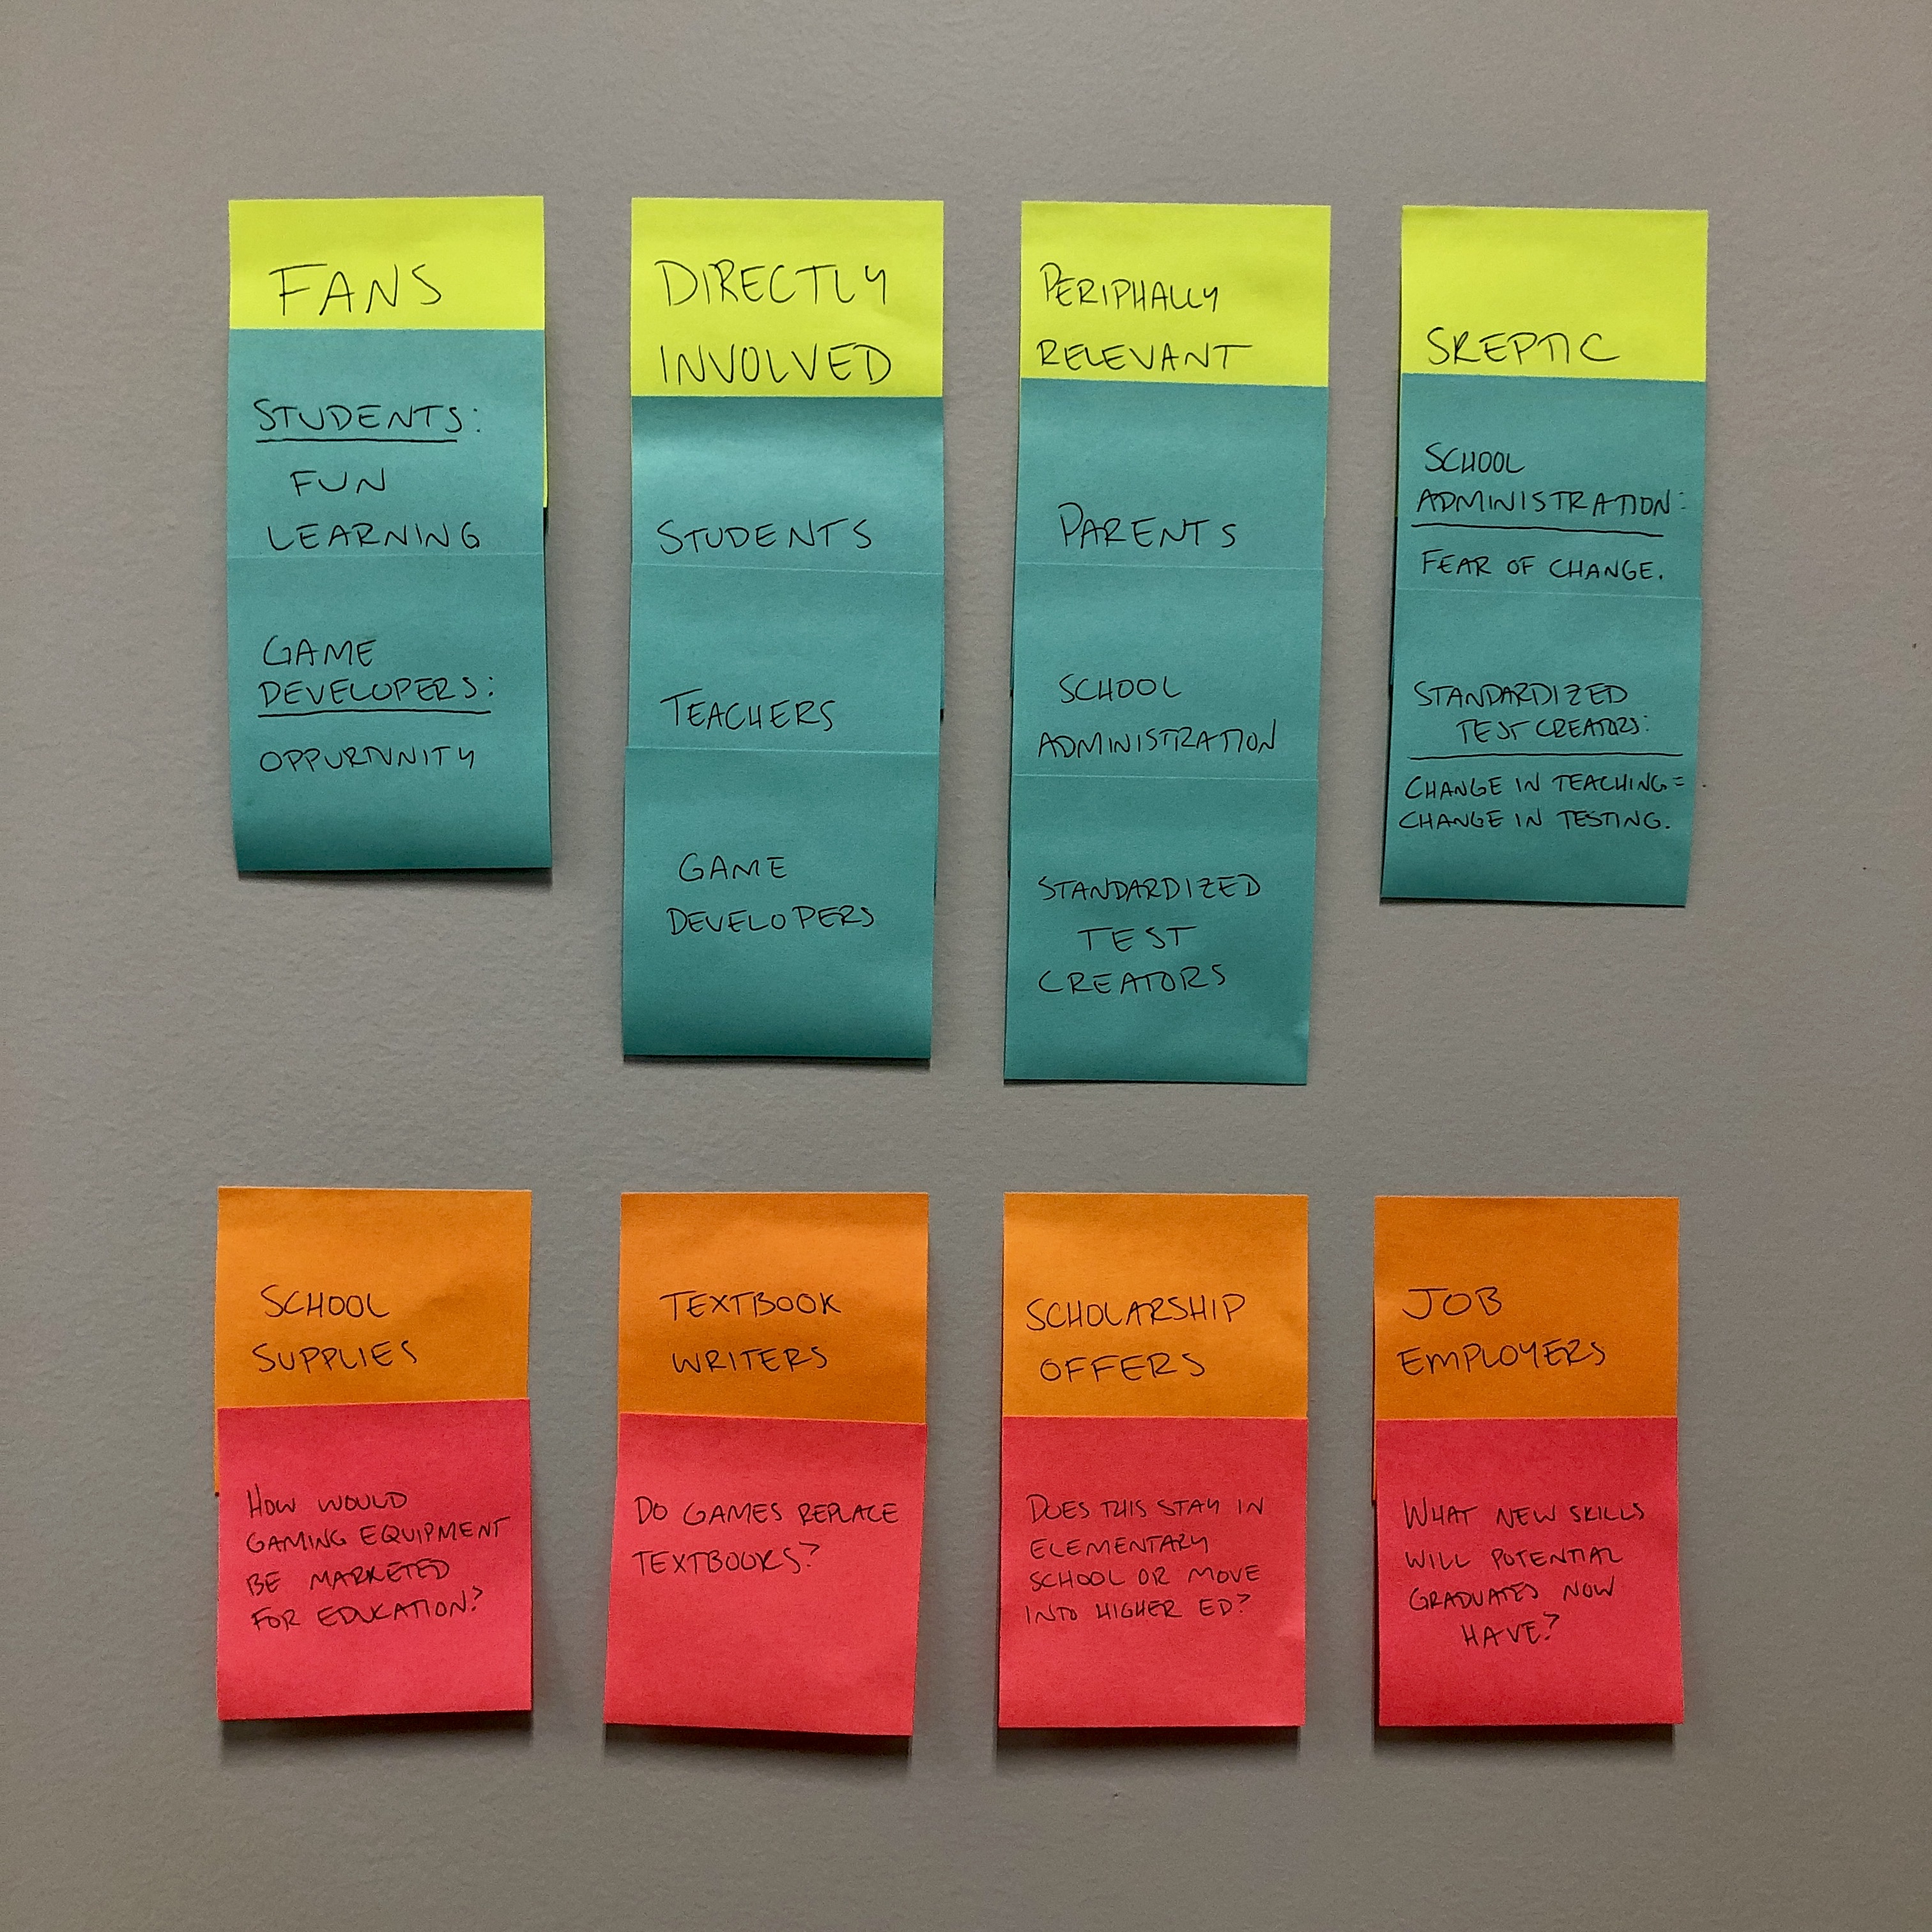 FANS
STUDENTS:
FUN
LEARNING
GAME
DEVELOPERS:
OPPURTUNITY
DIRECTLY
INVOLVED
STUDENTS
TEACHERS
GAME
DEVELOPERS
PERIPHALLY
RELEVANT
PARENTS
SCHOOL
ADMINISTRATION
STANDARDIZED
TEST
CREATORS
SKEPTIC
SCHOOL
ADMINISTRATION:
FEAR OF CHANGE.
STANDARDIZED
TEST CREATORS:
CHANGE IN TEACHING =
CHANGE IN TESTING.
SCHOOL
SUPPLIES
HOW WOULD
GAMING EQUIPMENT
BE MARKETED
FOR EDUCATION?
TEXTBOOK
WRITERS
DO GAMES REPLACE
TEXTBOOKS?
SCHOLARSHIP
OFFERS
DOES THIS STAY IN
ELEMENTARY
SCHOOL OR MOVE
INTO HIGHER ED?
JOB
EMPLOYERS
WHAT NEW SKILLS
WILL POTENTIAL
GRADUATES NOW
HAVE?